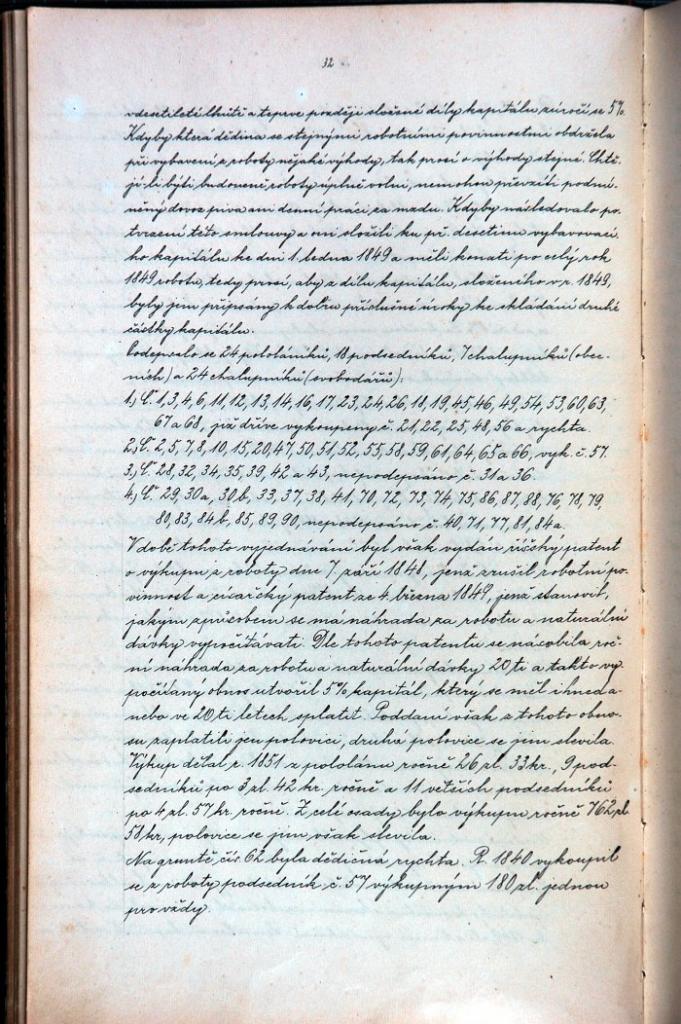 32
v desetileté lhůtě a teprve později složené díly kapitálu zúročí se 5%.
Kdyby která dědina se stejnými robotními povinnostmi obdržela
při vybavení z roboty nějaké výhody, tak prosí o výhody stejné. Chtě-
jí li býti budoucně roboty úplně volni, nemohou převzíti podmí-
něný dovoz piva ani denní práci za mzdu. Kdyby následovalo po-
tvrzení této smlouvy a oni složili ku př. desetinu vybavovací-
ho kapitálu ke dni 1. ledna 1849 a měli konati po celý rok
1849 robotu, tedy prosí, aby z dílu kapitálu, složeného v r. 1849,
byly jim připsány k dobru příslušné úroky ke skládání druhé
částky kapitálu.
Podepsalo se 24 pololáníků, 18 podsedníků, 7 chalupníků (obec-
ních) a 24 chalupníků (svobodářů):
1.) Č. 1, 3, 4, 6, 11, 12, 13, 14, 16, 17, 23, 24, 26, 18, 19, 45, 46, 49, 54, 53, 60, 63,
67 a 68, již dříve vykoupeny č. 21, 22, 25, 48, 56 a rychta.
2.) Č. 2, 5, 7, 8, 10, 15, 20, 47, 50, 51, 52, 55, 58, 59, 61, 64, 65 a 66, vyk. č. 57.
3.) Č. 28, 32, 34, 35, 39, 42 a 43, nepodepsáno č. 31 a 36.
4.) Č. 29, 30a, 30b, 33, 37, 38, 41, 70, 72, 73, 74, 75, 86, 87, 88, 76, 78, 79,
80, 83, 84b, 85, 89, 90, nepodepsáno č. 40, 71, 77, 81, 84a.
V době tohoto vyjednávání byl však vydán říšský patent
o výkupu z roboty dne 7. září 1848, jenž zrušil robotní po-
vinnost a císařský patent ze 4. března 1849, jenž stanovil,
jakým způsobem se má náhrada za robotu a naturální
dávky vypočítávati. Dle tohoto patentu se násobila roč-
ní náhrada za robotu a naturální dávky 20 ti a takto vy-
počítaný obnos utvořil 5% kapitál, který se měl ihned a-
nebo ve 20 ti letech splatit. Poddaní však z tohoto obno-
su zaplatili jen polovici, druhá polovice se jim slevila.
Výkup dělal r. 1851 z pololánu ročně 26 zl. 33 kr., 9 pod-
sedníků po 3 zl. 42 kr. ročně a 11 větších podsedníků
po 4 zl. 57 kr. ročně. Z celé osady bylo výkupu ročně 762 zl.
58 kr., polovice se jim však slevila.
Na gruntě čís. 62 byla dědičná rychta. R. 1840 vykoupil
se z roboty podsedník č. 57 výkupným 180 zl. jednou
pro vždy.